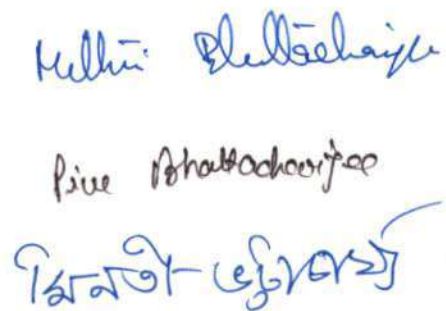 Bhattacharjee
Piue Bhattacharjee
মিনতী ভট্টাচার্য্য